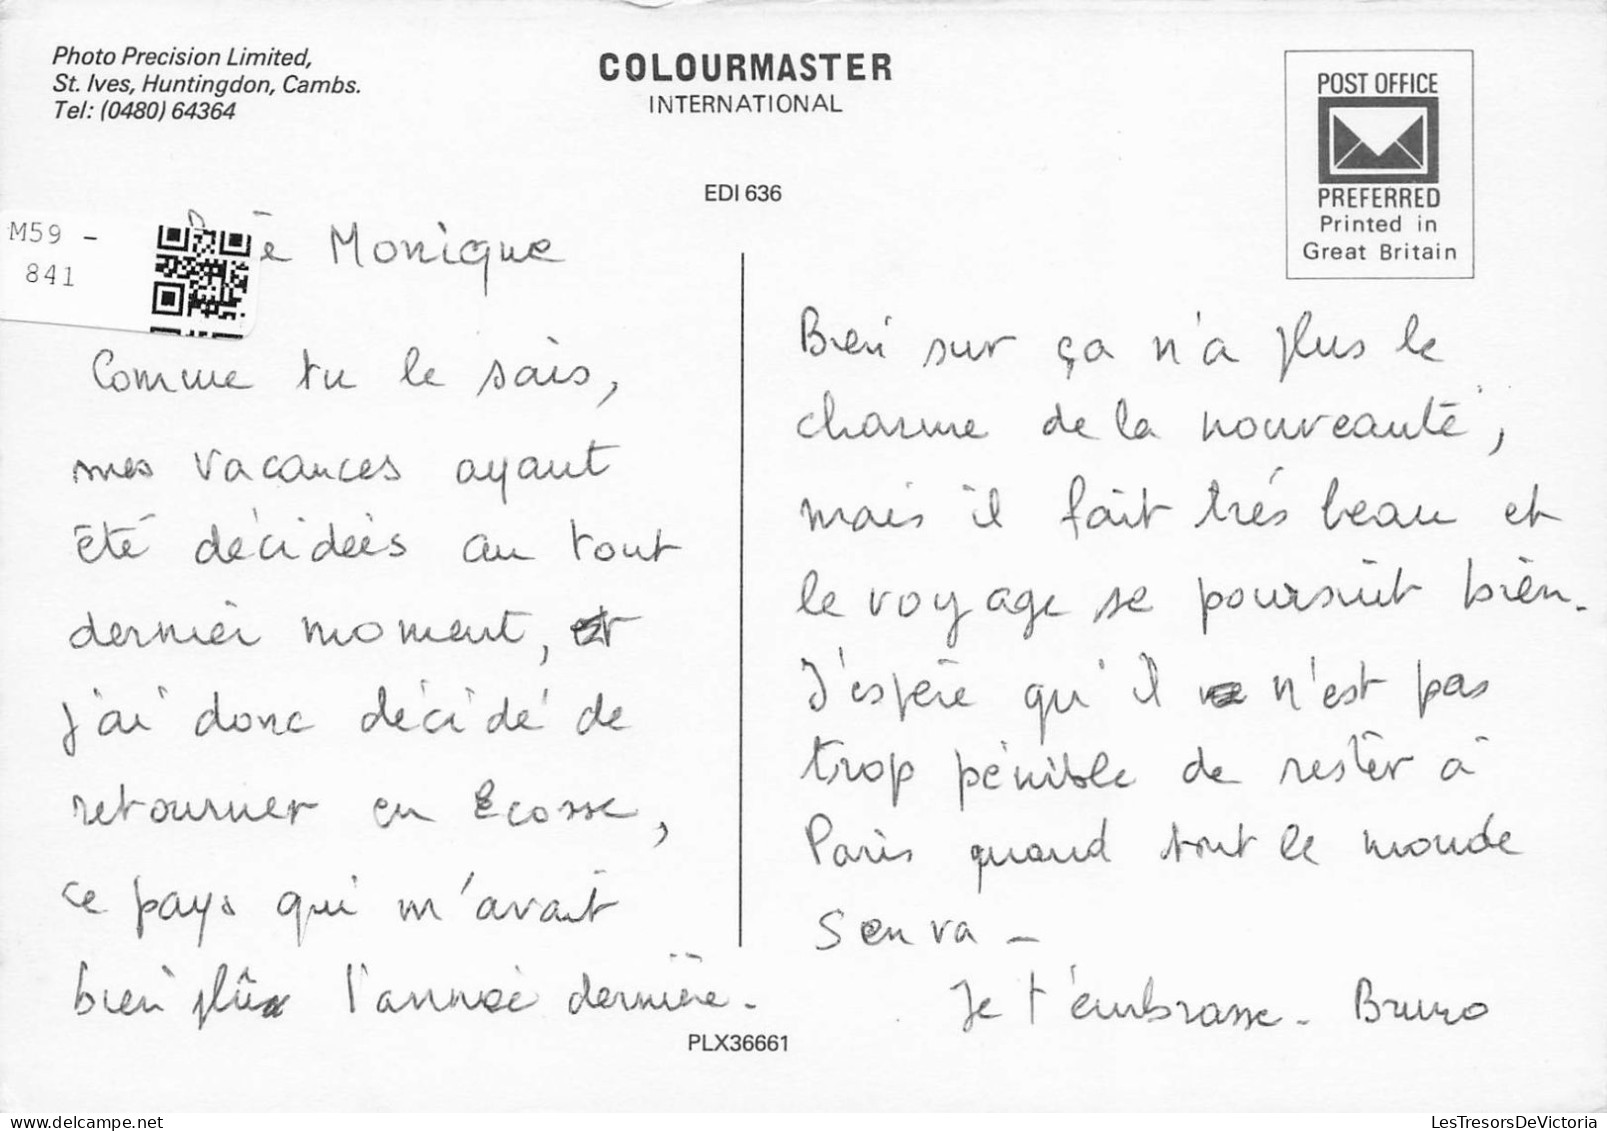 Photo Precision Limited,
St. Ives, Huntingdon, Cambs.
Tel: (0480) 64364
COLOURMASTER
INTERNATIONAL
EDI 636
POST OFFICE
PREFERRED
Printed in
Great Britain
M59 -
841
Monique
Comme tu le sais,
mes vacances ayant
été décidées au tout
dernier moment, et
j'ai donc décidé de
retourner en Ecosse,
ce pays qui m'avait
bien plû l'année dernière.
Bien sur ça n'a plus le
charme de la nouveauté,
mais il fait très beau et
le voyage se poursuit bien.
J'espère qu'il n'est pas
trop pénible de rester à
Paris quand tout le monde
s'en va -
Je t'embrasse. Bruno
PLX36661
LesTresorsDeVictoria